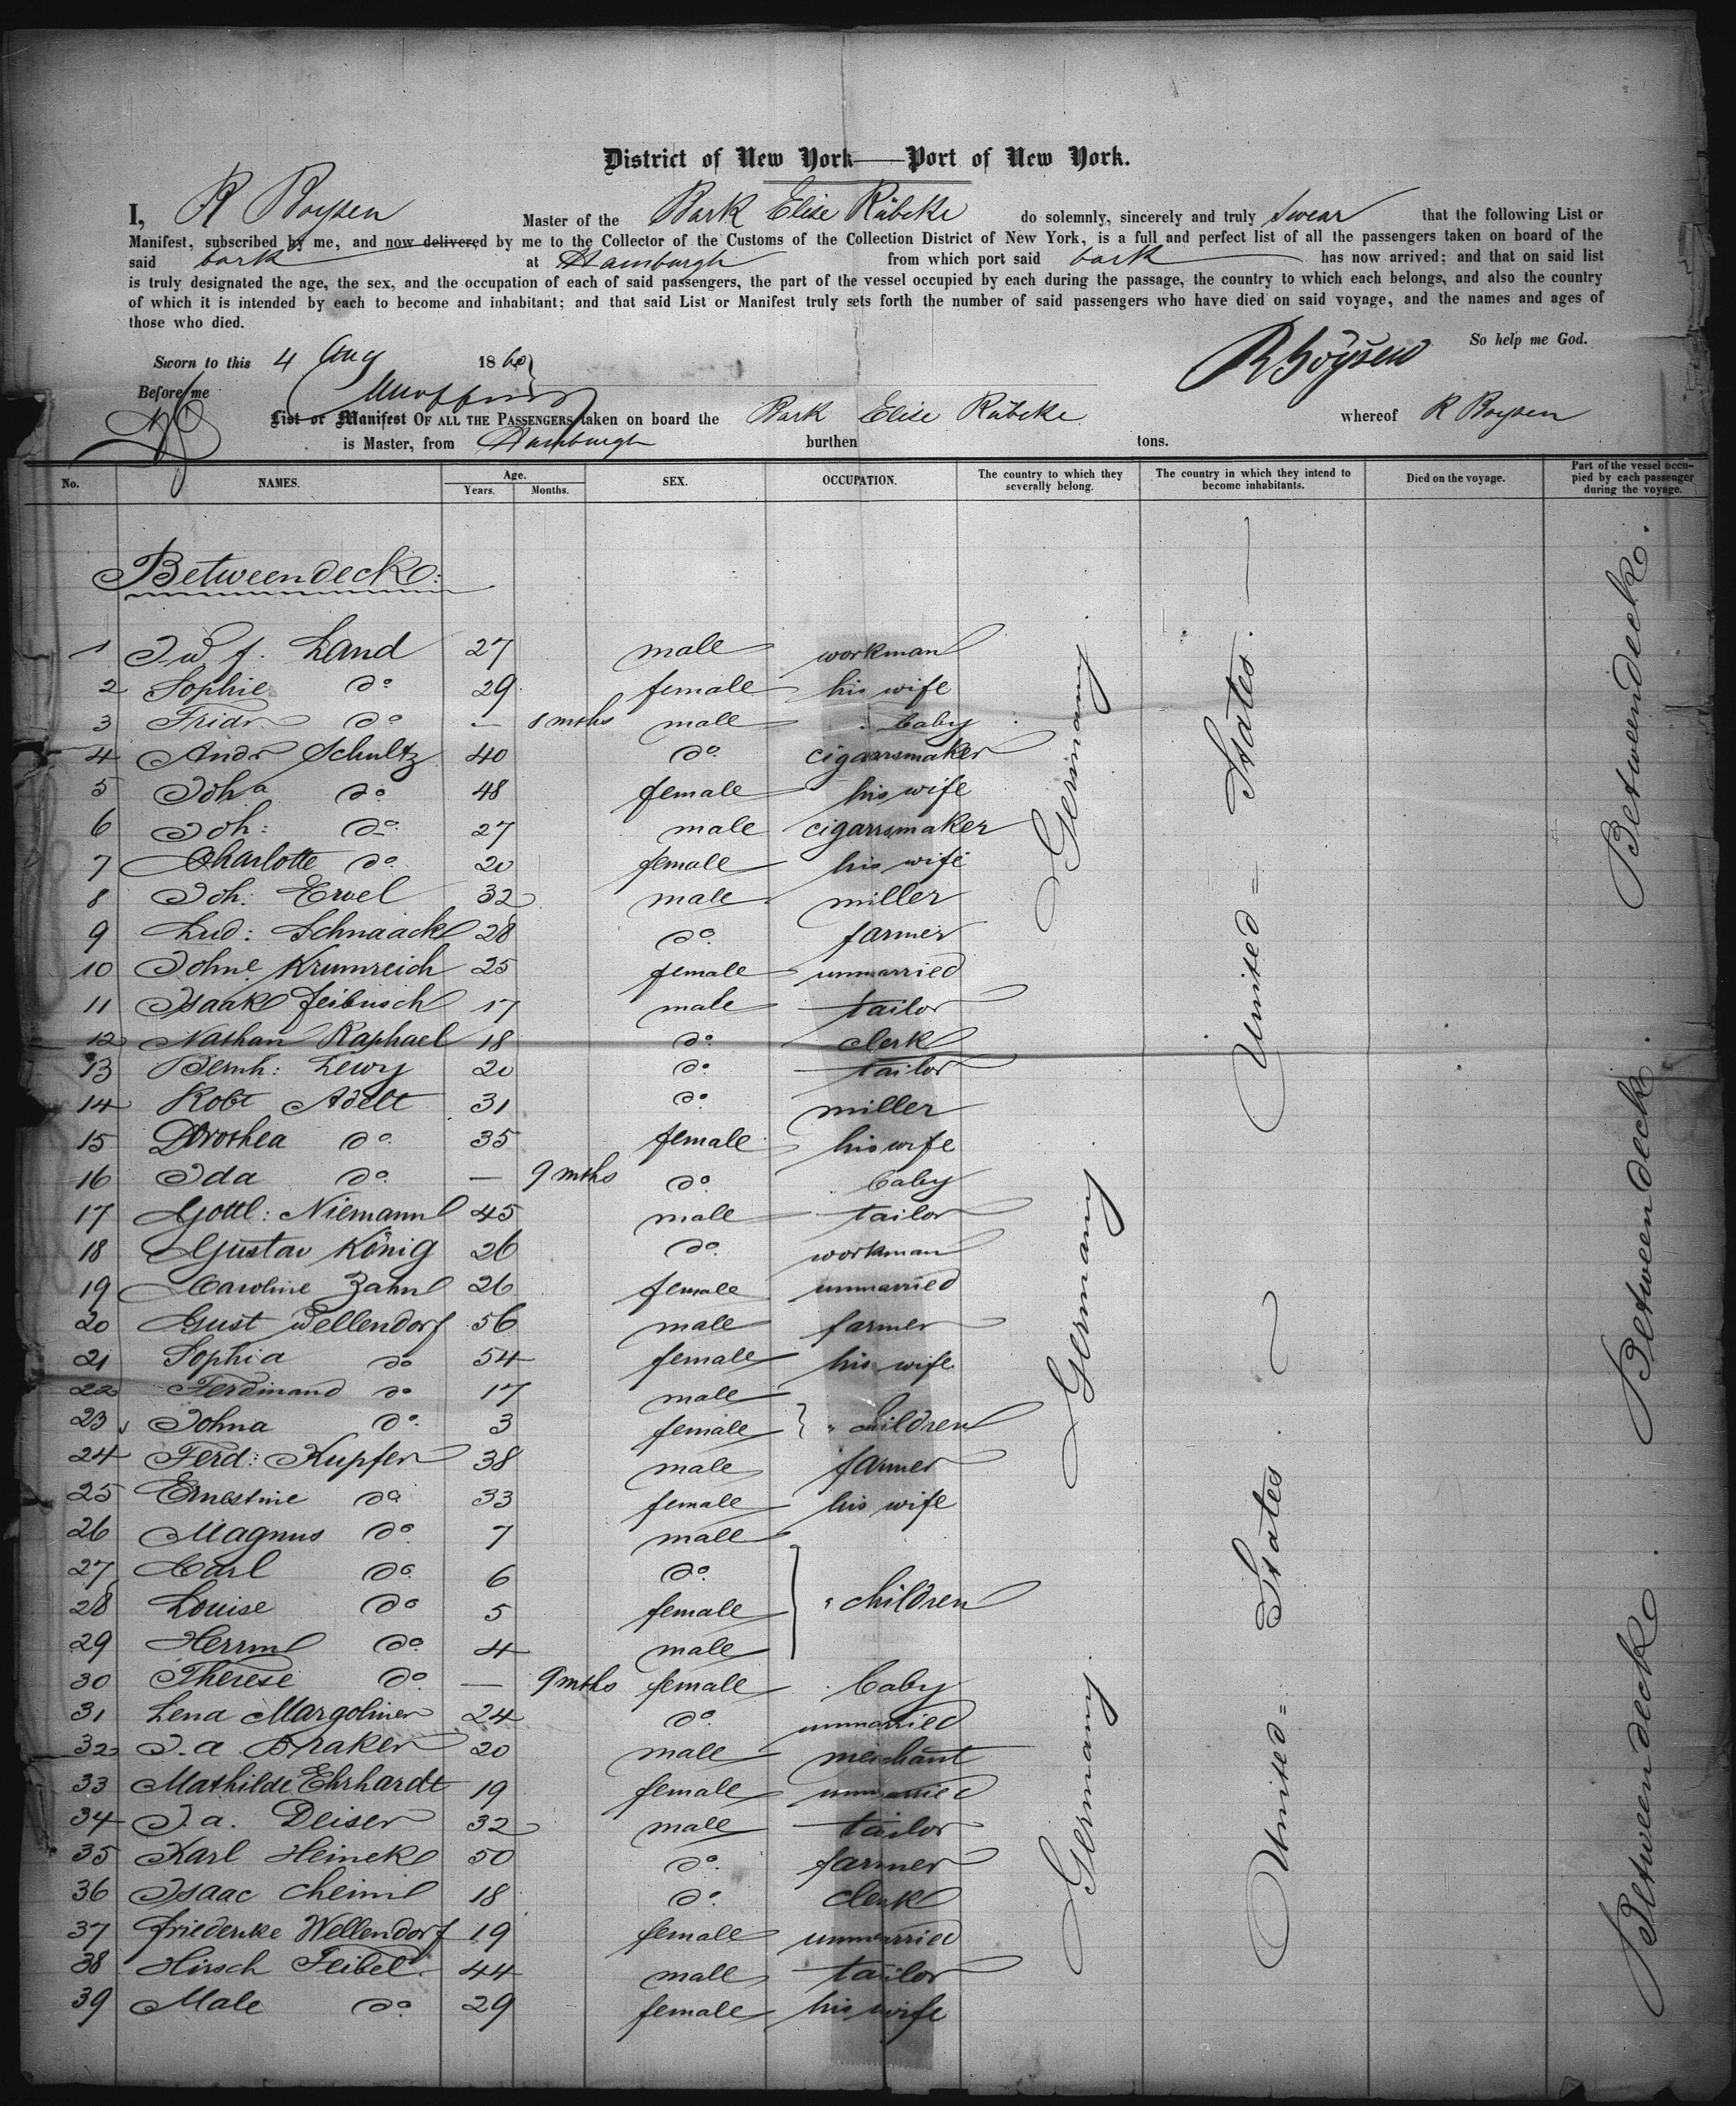 District of New York—Port of New York.
I, R Boysen Master of the Bark Elise Rübcke do solemnly, sincerely and truly swear that the following List or
Manifest, subscribed by me, and now delivered by me to the Collector of the Customs of the Collection District of New York, is a full and perfect list of all the passengers taken on board of the
said bark at Hamburgh from which port said bark has now arrived; and that on said list
is truly designated the age, the sex, and the occupation of each of said passengers, the part of the vessel occupied by each during the passage, the country to which each belongs, and also the country
of which it is intended by each to become and inhabitant; and that said List or Manifest truly sets forth the number of said passengers who have died on said voyage, and the names and ages of
those who died.
So help me God.
Sworn to this 4 Aug 1860
R Boysen
Before me
List or Manifest OF ALL THE PASSENGERS taken on board the Bark Elise Rübcke whereof R Boysen
is Master, from Hamburgh burthen tons.
No. NAMES. Age. Years. Months. SEX. OCCUPATION. The country to which they severally belong. The country in which they intend to become inhabitants. Died on the voyage. Part of the vessel occupied by each passenger during the voyage.
Betweendecks:
1 J W f. Land 27 male workman
2 Sophie do 29 female his wife
3 Fridr do — 8 mths male " baby
4 Andr Schultz 40 do cigarrsmaker
5 Joha do 48 female his wife
6 Joh: do 27 male cigarrsmaker
7 Charlotte do 20 female his wife
8 Joh: Ervel 32 male miller
9 Lud: Schnaack 28 do farmer
10 Johne Krumreich 25 female unmarried
11 Isaak Feibusch 17 male tailor
12 Nathan Raphael 18 do clerk
13 Bernh: Lewy 20 do tailor
14 Robt Adelt 31 do miller
15 Dorothea do 35 female his wife
16 Ida do — 9 mths do " baby
17 Gottl: Niemann 45 male tailor
18 Gustav König 26 do workman
19 Caroline Zahn 26 female unmarried
20 Gust Wellendorf 56 male farmer
21 Sophia do 54 female his wife
22 Ferdinand do 17 male
23 Johna do 3 female " children
24 Ferd: Kupfer 38 male farmer
25 Ernestine do 33 female his wife
26 Magnus do 7 male
27 Carl do 6 do
28 Louise do 5 female " children
29 Herrm do 4 male
30 Therese do — 9 mths female " baby
31 Lena Margoliner 24 do unmarried
32 J. a Braker 20 male merchant
33 Mathilde Ehrhardt 19 female unmarried
34 J. a. Deiser 32 male tailor
35 Karl Heineke 50 do farmer
36 Isaac Cheim 18 do clerk
37 Friederike Wellendorf 19 female unmarried
38 Hirsch Feibel 44 male tailor
39 Male do 29 female his wife
Germany
Germany
Germany
United = States
United = States
Betweendecks.
Betweendeck.
Betweendecks.